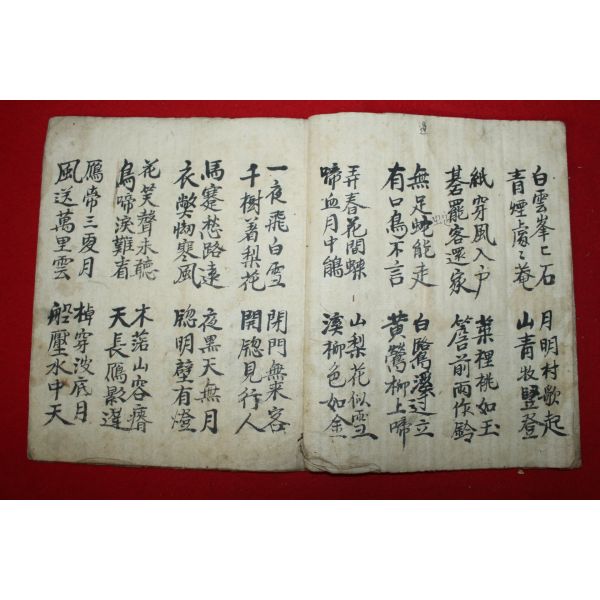 白雲峯〻石
青煙處〻菴
月明村歌起
山青牧竪登
紙穿風入戶
碁罷客還家
葉裡桃如玉
簷前雨作鈴
無足蛇能走
有口鳥不言
白鷺溪辺立
黃鶯柳上啼
弄春花間蝶
啼血月中鵑
山梨花似雪
溪柳色如金
一夜飛白雪
千樹着梨花
閉門無来客
開牕見行人
馬蹇愁路遠
衣弊寒風
夜黑天無月
牕明壁有燈
花笑聲未聽
鳥啼淚難看
木落山容瘠
天長鴈影遲
鴈帝三更月
風送萬里雲
棹穿波底月
船壓水中天